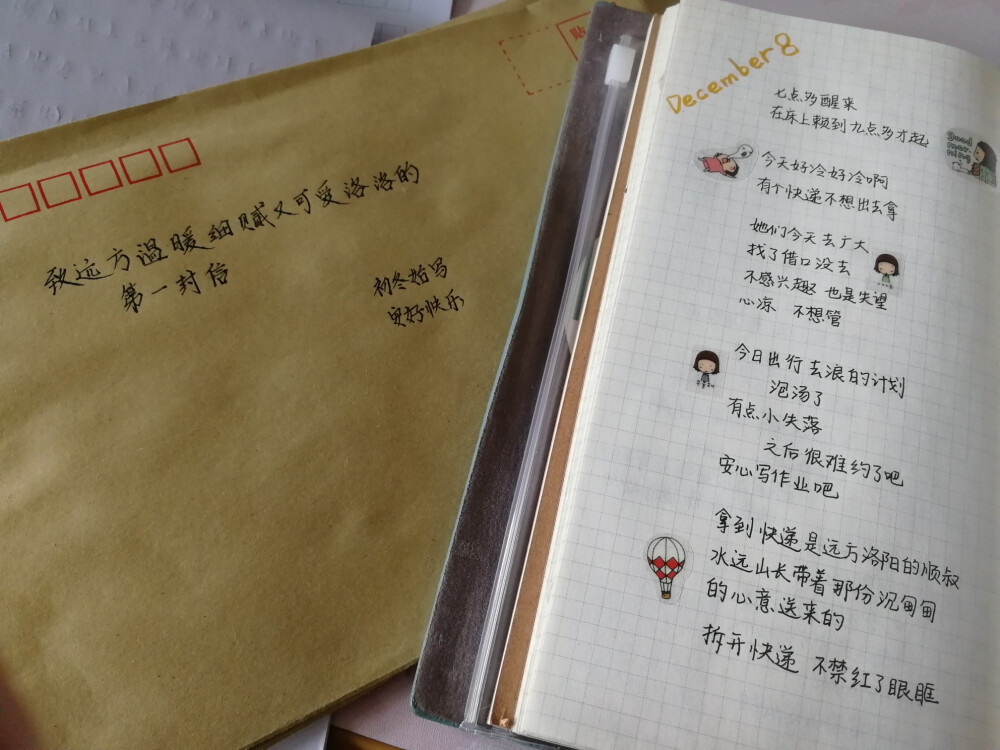 贴
致远方温暖细腻又可爱洛洛的
第一封信
初冬始写
更好快乐
December 8
七点多醒来
在床上赖到九点多才起
Good
mor
ning
今天好冷好冷啊
有个快递不想出去拿
她们今天去广大
找了借口没去
不感兴趣 也是失望
心凉 不想管
今日出行去浪的计划
泡汤了
有点小失落
之后很难约了吧
安心写作业吧
拿到快递是远方洛阳的顺叔
水远山长带着那份沉甸甸
的心意送来的
拆开快递 不禁红了眼眶